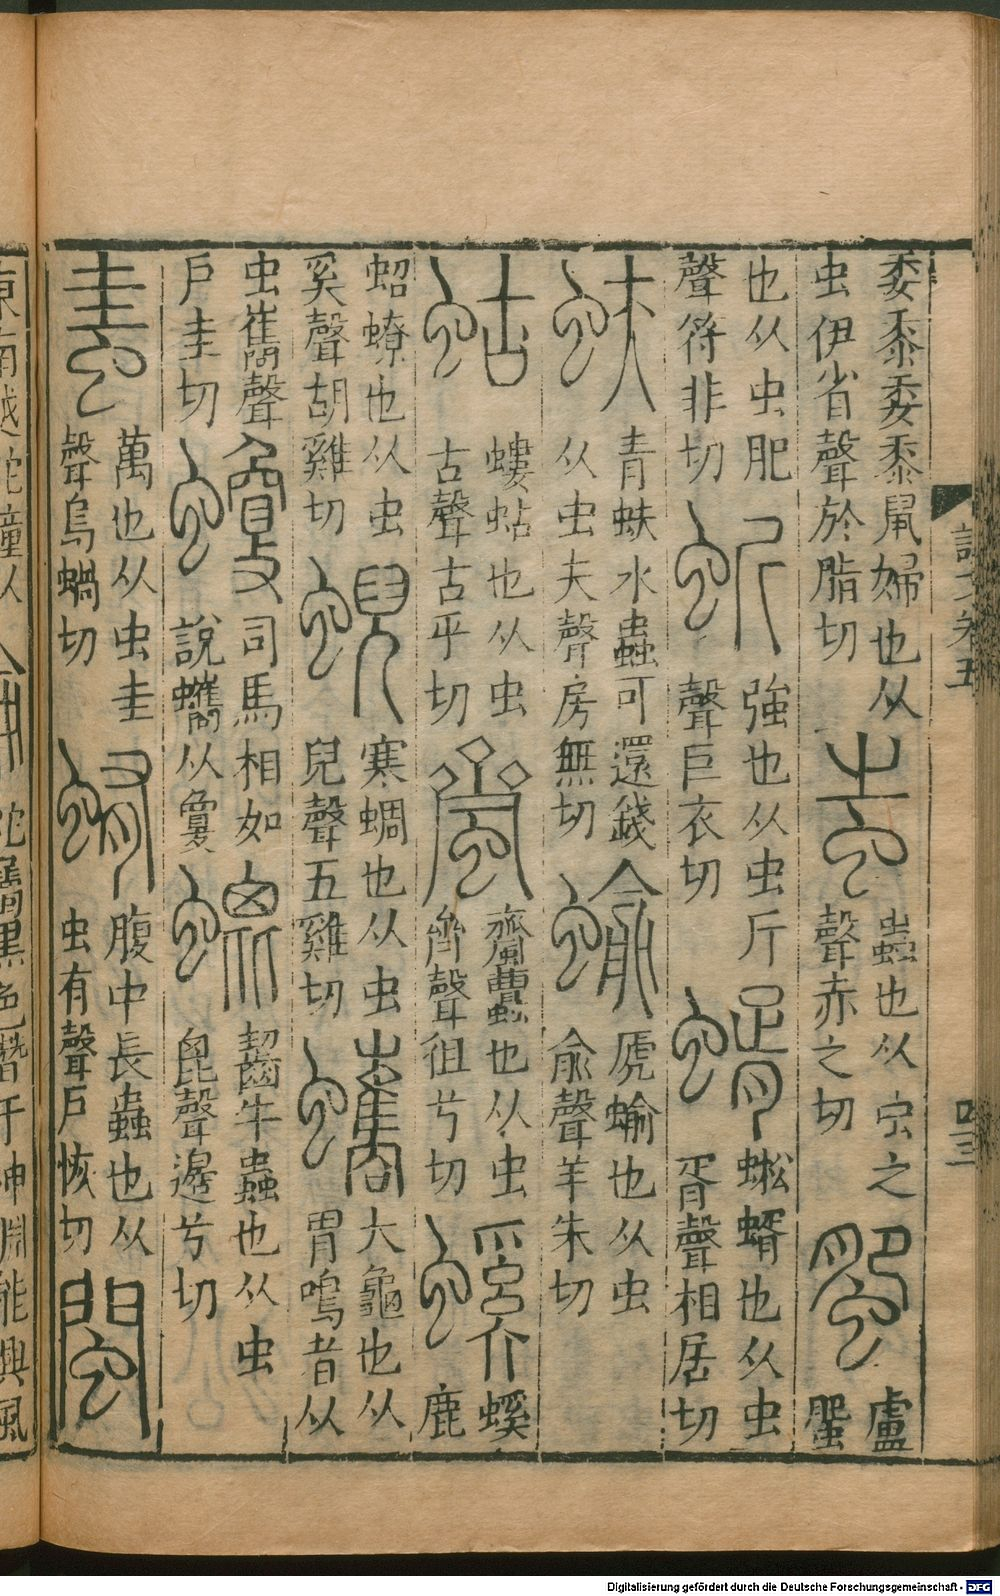 委黍委黍鼠婦也从
虫伊省聲於脂切
蚩
蟲也从虫之
聲赤之切
蜰
盧
蜰
也从虫肥
聲符非切
蚚
強也从虫斤
聲巨衣切
蝑
蜙蝑也从虫
胥聲相居切
蚨
青蚨水蟲可還錢
从虫夫聲房無切
蝓
虒蝓也从虫
俞聲羊朱切
蛄
螻蛄也从虫
古聲古乎切
蠐
也从虫
聲徂兮切
螇
螇
鹿
蛁蟟也从虫
奚聲胡雞切
蜺
寒蜩也从虫
兒聲五雞切
蠵
大龜也从
胃鳴者从
虫巂聲
戶圭切
司馬相如
說蠵从敻
蠶
齧牛蟲也从虫
聲邊兮切
蛙
萬也从虫圭
聲烏蝸切
蛕
腹中長蟲也从
虫有聲戶恢切
閩
說文卷五
四三
Digitalisierung gefördert durch die Deutsche Forschungsgemeinschaft - DFG